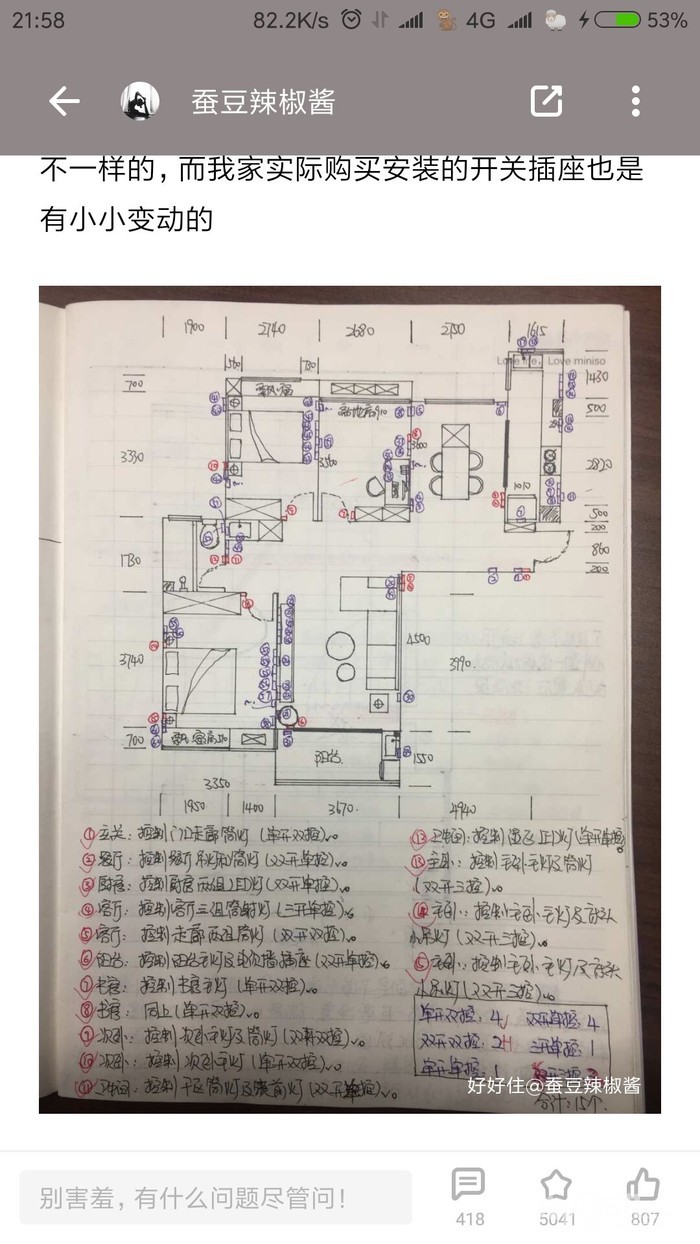 21:58
82.2K/s
4G
53%
蚕豆辣椒酱
不一样的，而我家实际购买安装的开关插座也是
有小小变动的
1900
2740
2680
2750
1615
Love life, Love miniso
700
3330
1730
3740
700
1430
500
2820
500
200
860
200
3560
1010
4500
3990
1550
阳台
3350
1950
1400
3670
4940
①玄关：控制门口走廊筒灯（单开双控）
②餐厅：控制餐厅吊灯和筒灯（双开单控）
③厨房：控制厨房两组LED灯（双开单控）
④客厅：控制客厅三组筒射灯（三开单控）
⑤客厅：控制走廊两组筒灯（双开双控）
⑥阳台：控制阳台主灯及电动墙插座（双开单控）
⑦书房：控制书房主灯（单开双控）
⑧书房：同上（单开双控）
⑨次卧：控制次卧主灯及筒灯（双开双控）
⑩次卧：控制次卧主灯（单开双控）
⑪卫生间：控制干区筒灯及镜前灯（双开单控）
⑫卫生间：控制湿区LED灯（单开单控）
⑬主卧：控制主卧主灯及筒灯
（双开三控）
主卧：控制主卧主灯及床头
小吊灯（双开三控）
主卧：控制主卧主灯及床头
小吊灯（双开三控）
单开双控：4 双开单控：4
双开双控：2 三开单控：1
单开单控：1
合计：15个
好好住@蚕豆辣椒酱
别害羞，有什么问题尽管问！
418
5041
807